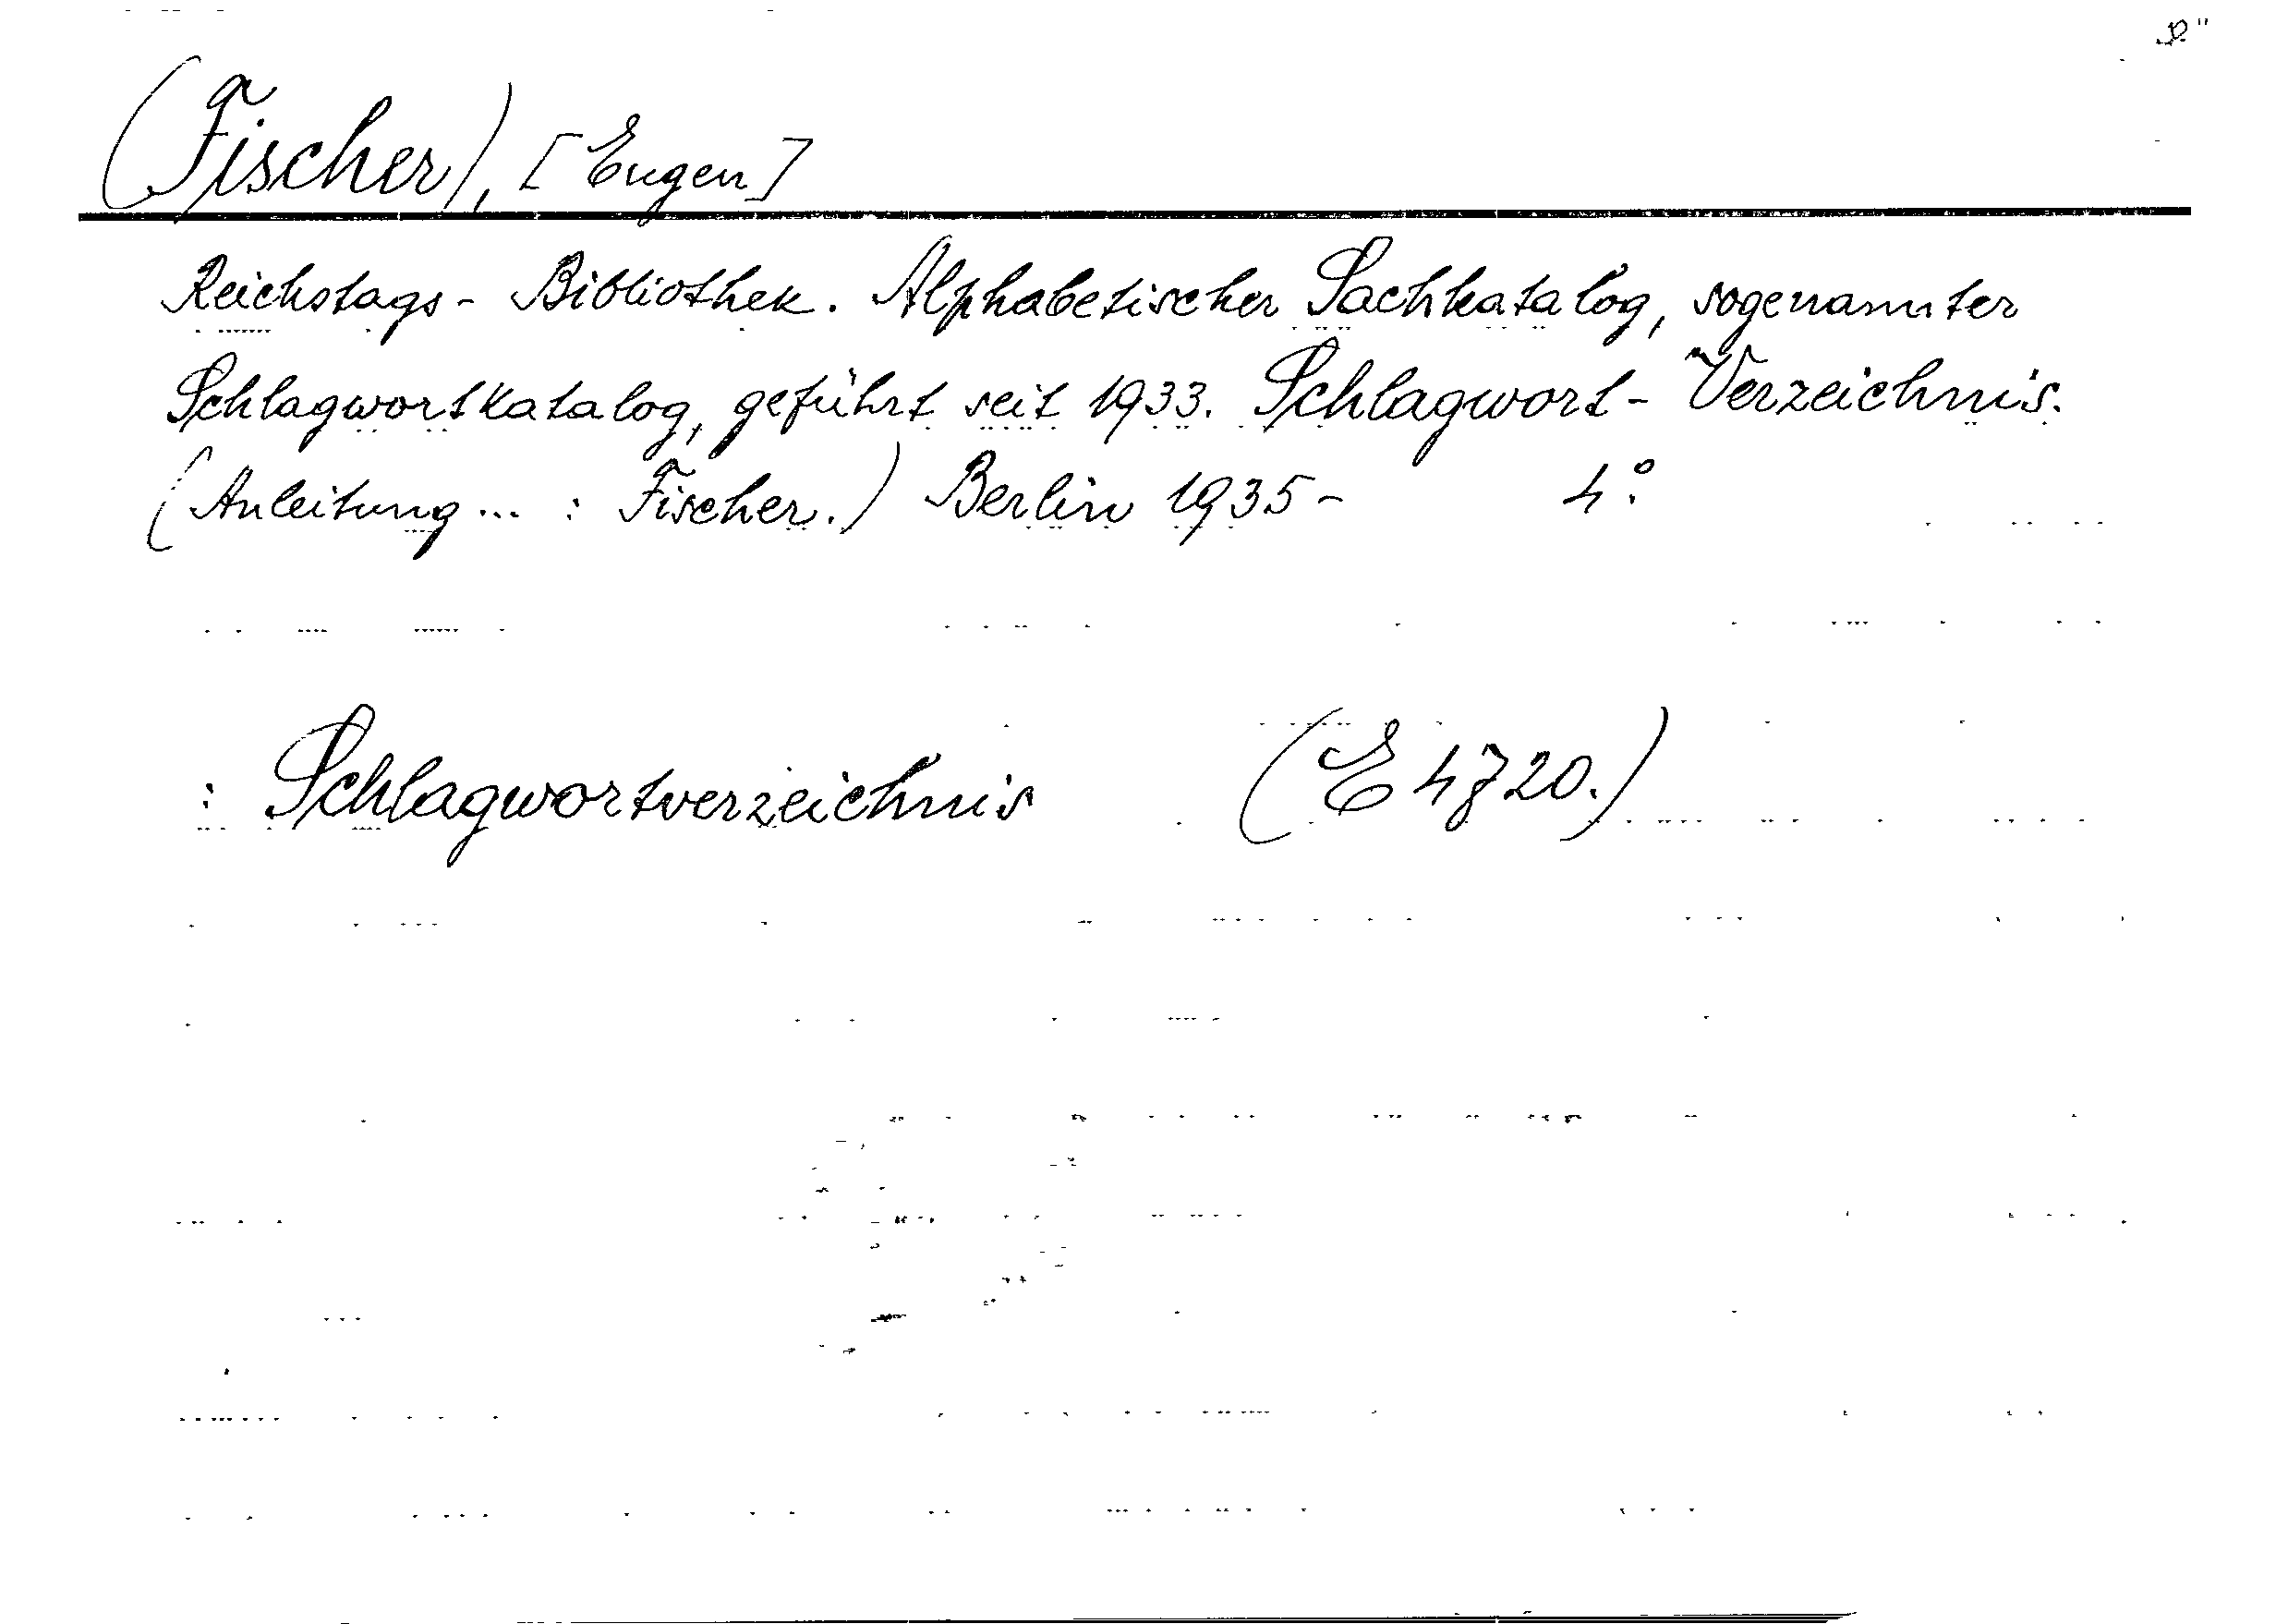 (Fischer), [Eugen]
Reichstags-Bibliothek. Alphabetischer Sachkatalog, sogenannter
Schlagwortkatalog, geführt seit 1933. Schlagwort-Verzeichnis.
(Anleitung... : Fischer.) Berlin 1935- 4°.
: Schlagwortverzeichnis (E 4720.)